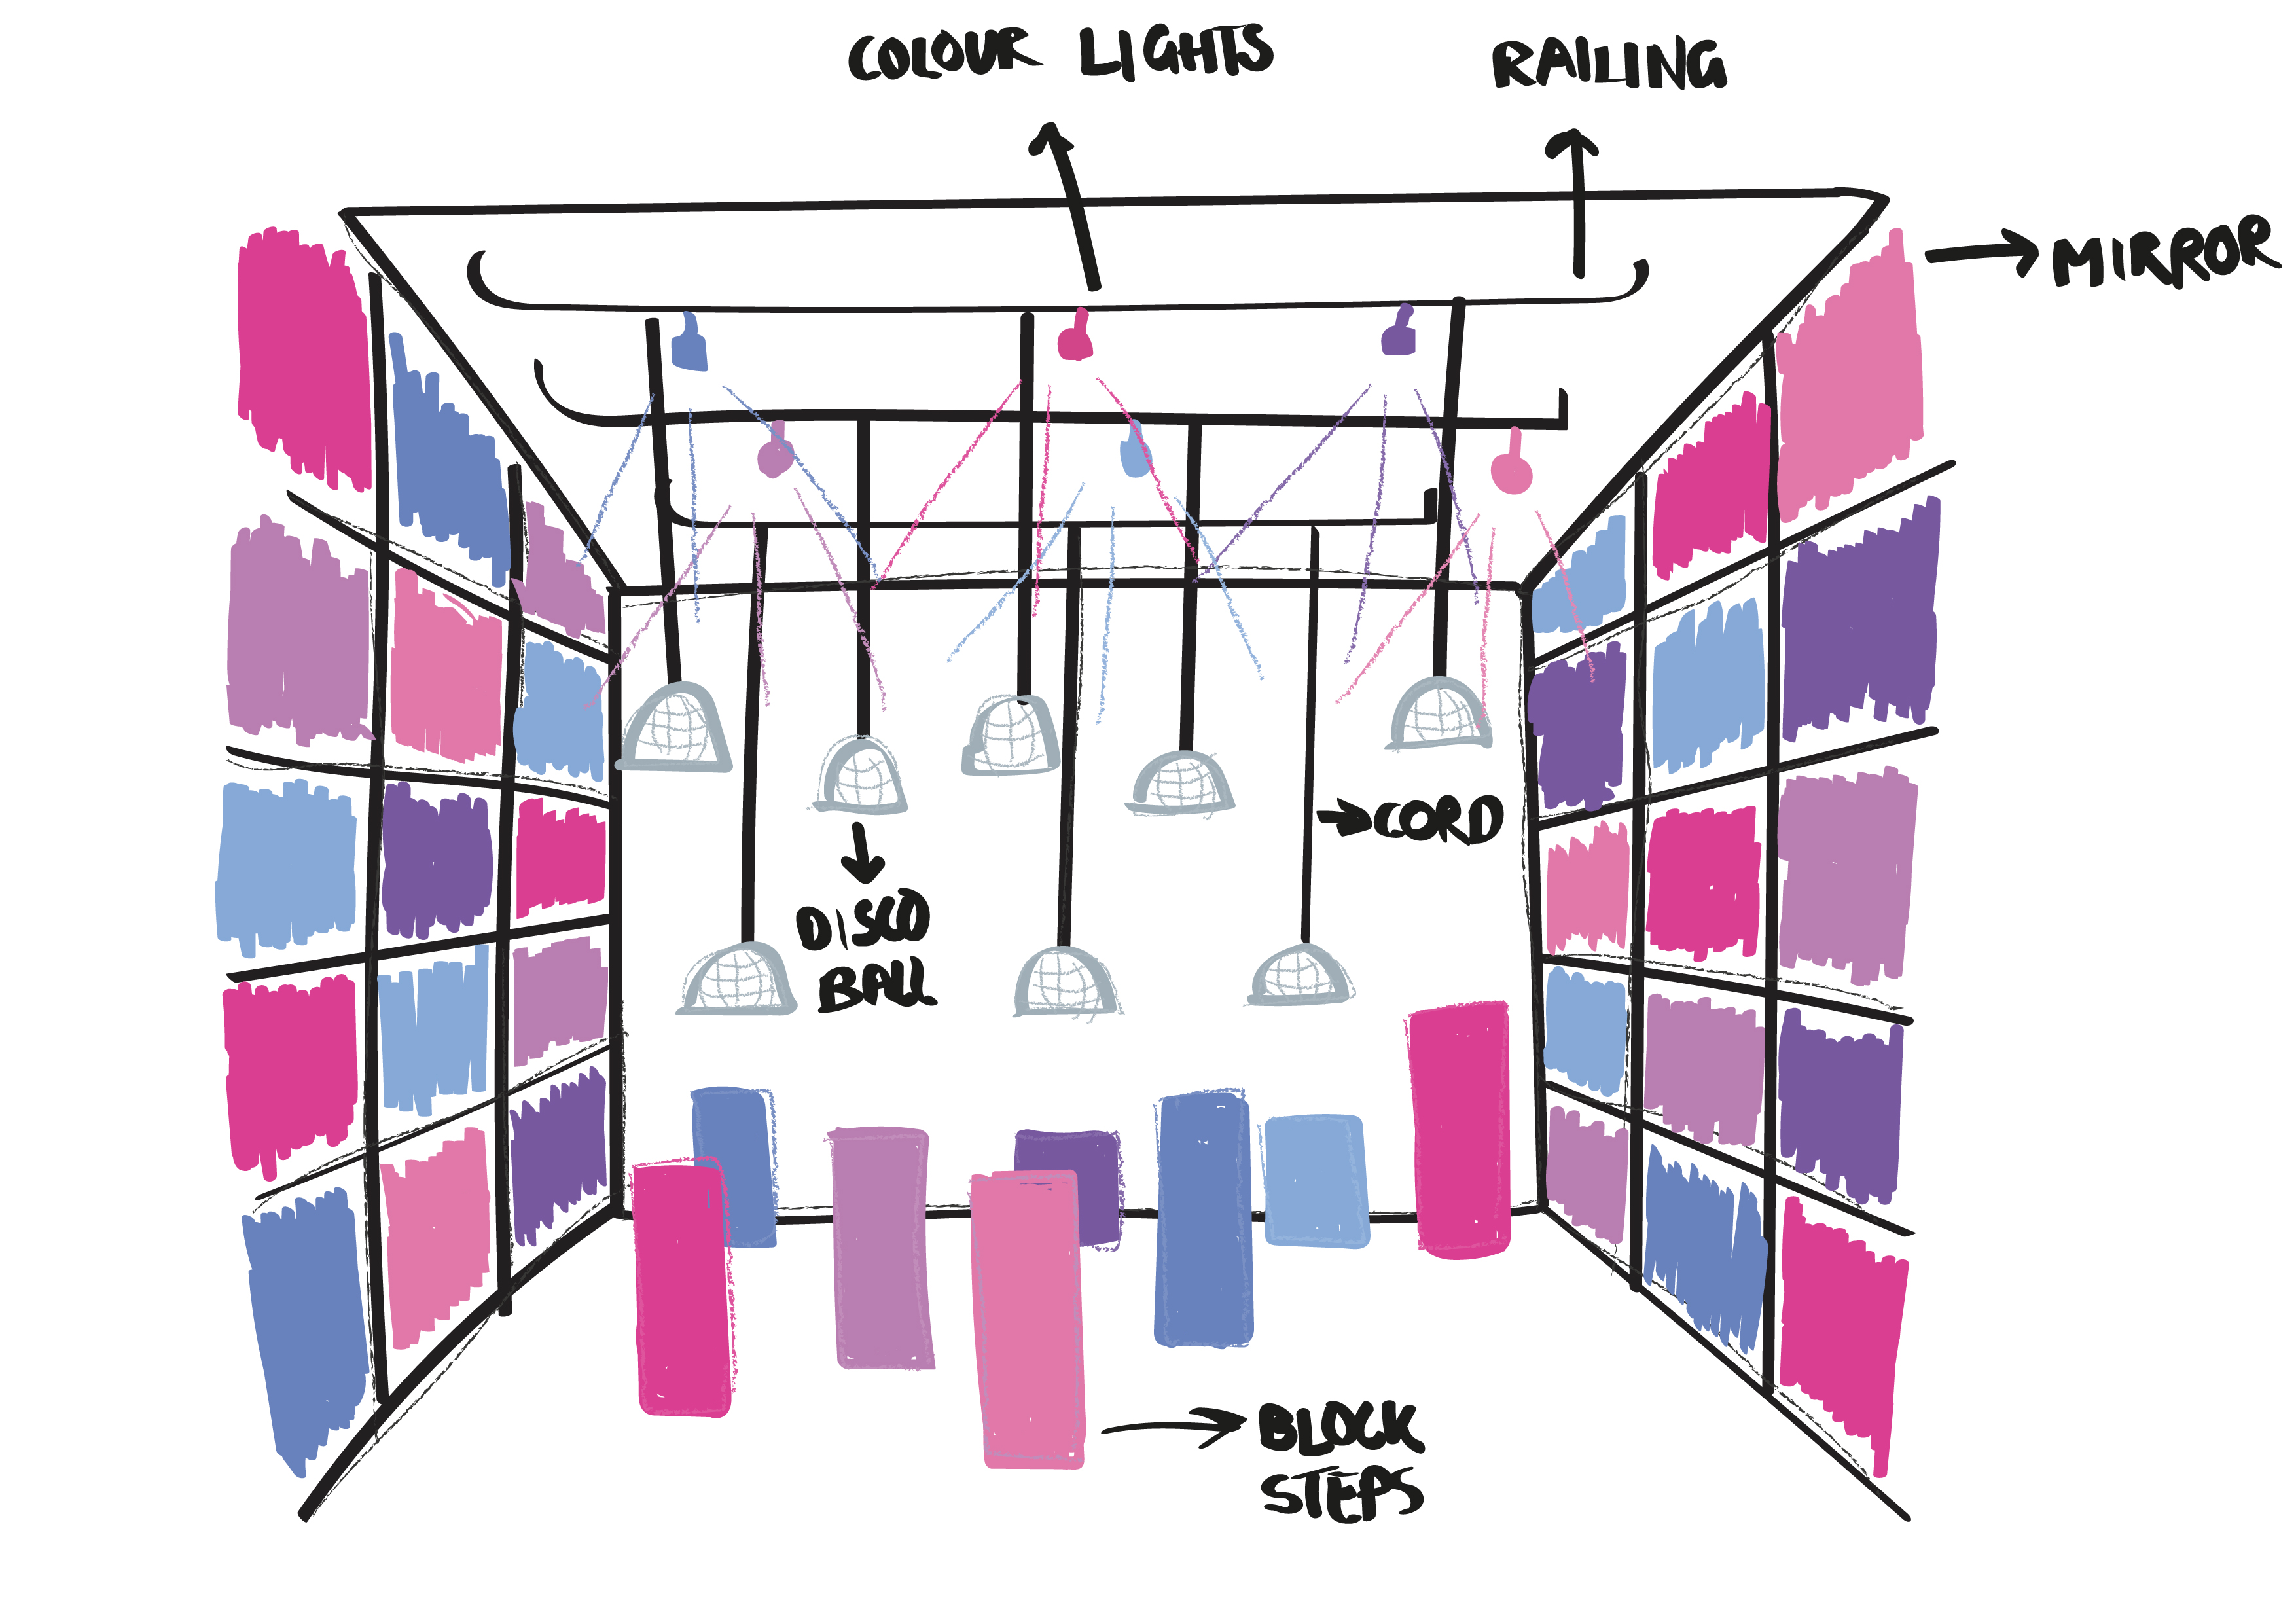 COLOUR LIGHTS
RAILING
MIRROR
CORD
DISCO
BALL
BLOCK
STEPS